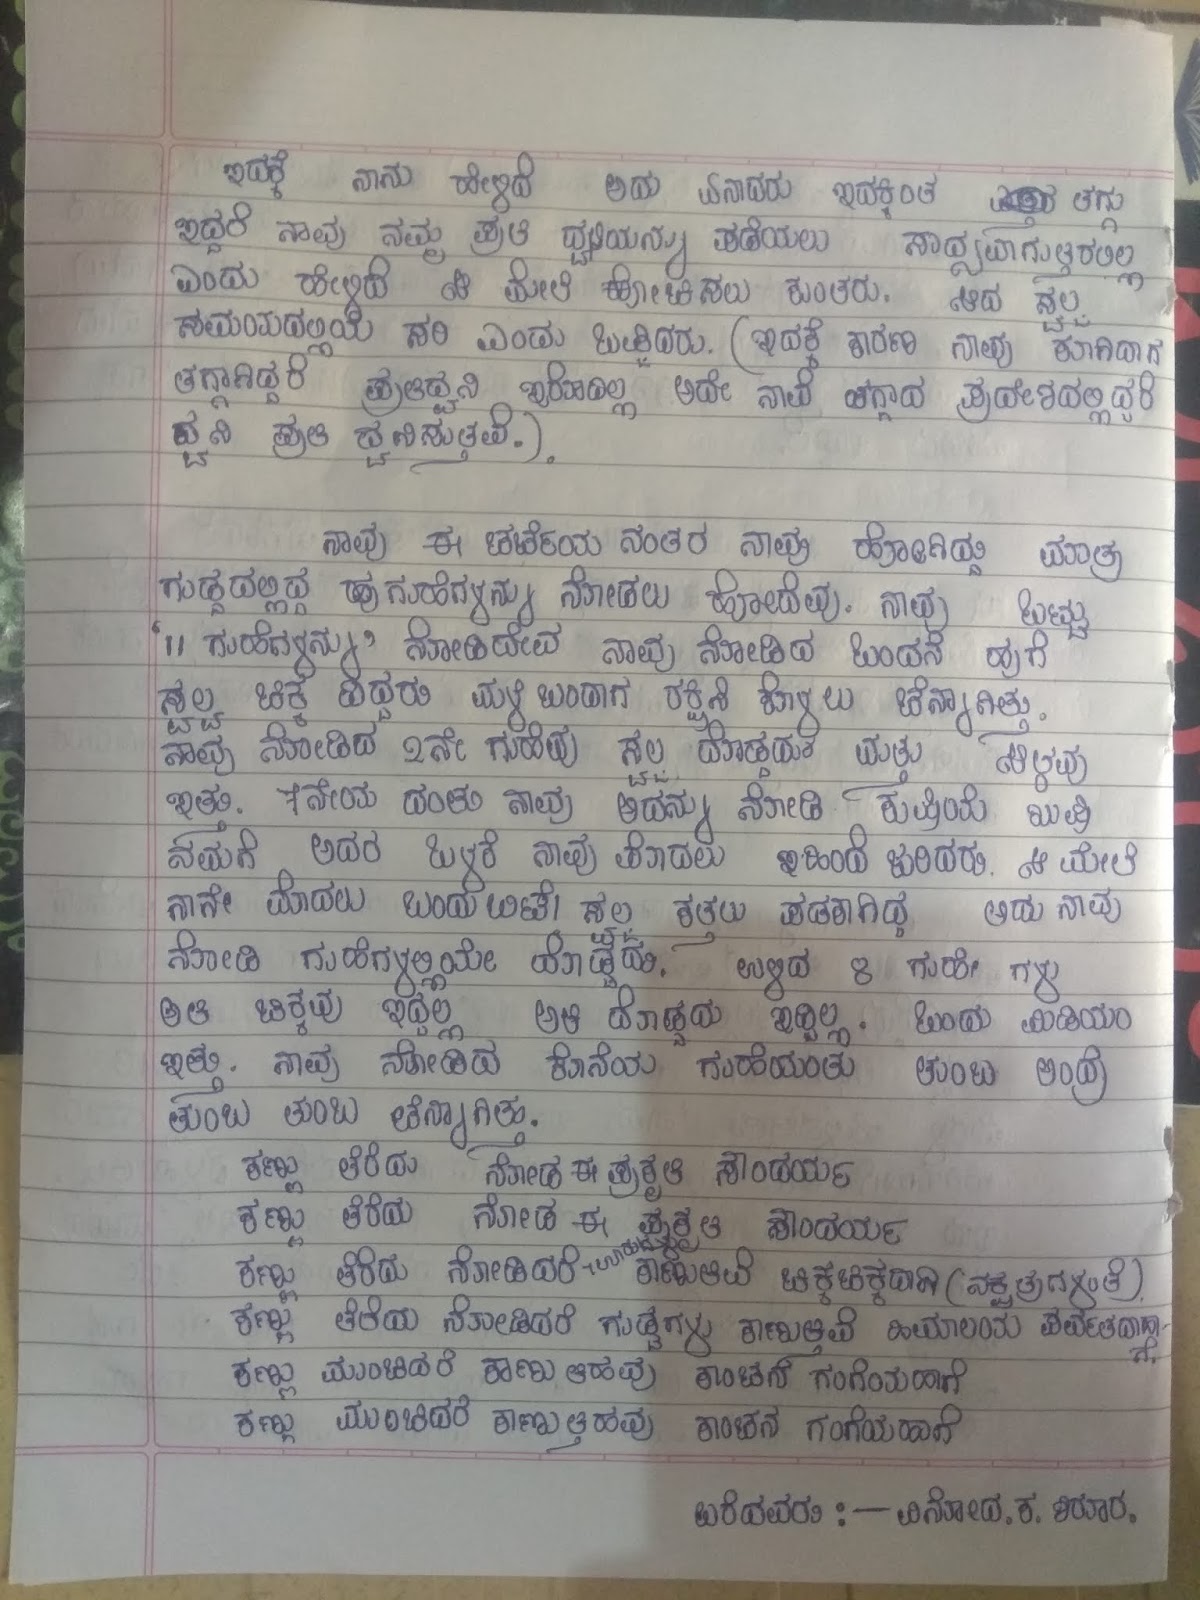 ಇದಕ್ಕೆ ನಾನು ಹೇಳಿದೆ ಅದು ಏನಾದರು ಇದಕ್ಕಿಂತ ತಗ್ಗು
ಇದ್ದರೆ ನಾವು ನಮ್ಮ ಪ್ರತಿ ಧ್ವನಿಯನ್ನು ಪಡೆಯಲು ಸಾಧ್ಯವಾಗುತ್ತಿರಲಿಲ್ಲ
ಎಂದು ಹೇಳಿದೆ ಆ ಮೇಲೆ ಯೋಚಿಸಲು ಕುಂತರು. ಆದ ಸ್ವಲ್ಪ
ಸಮಯದಲ್ಲಿಯೆ ಸರಿ ಎಂದು ಒಪ್ಪಿದರು. (ಇದಕ್ಕೆ ಕಾರಣ ನಾವು ಕೂಗಿದಾಗ
ತಗ್ಗಾಗಿದ್ದರೆ ಪ್ರತಿಧ್ವನಿ ಇರೊದಿಲ್ಲ ಅದೇ ನಾವೆ ತಗ್ಗಾದ ಪ್ರದೇಶದಲ್ಲಿದ್ದರೆ
ಧ್ವನಿ ಪ್ರತಿ ಧ್ವನಿಸುತ್ತವೆ.).
ನಾವು ಈ ಚರ್ಚೆಯ ನಂತರ ನಾವು ಹೋಗಿದ್ದು ಮಾತ್ರ
ಗುಡ್ಡದಲ್ಲಿದ್ದ ಗುಹೆಗಳನ್ನು ನೋಡಲು ಹೋದೆವು. ನಾವು ಒಟ್ಟು
‘11 ಗುಹೆಗಳನ್ನು’ ನೋಡಿದೇವ ನಾವು ನೋಡಿದ ಒಂದನೆ ಗುಹೆ
ಸ್ವಲ್ಪ ಚಿಕ್ಕ ಇದ್ದರು ಮಳೆ ಬಂದಾಗ ರಕ್ಷಿಸಿ ಕೊಳ್ಳಲು ಚೆನ್ನಾಗಿತ್ತು.
ನಾವು ನೋಡಿದ 2ನೇ ಗುಹೆವು ಸ್ವಲ್ಪ ದೊಡ್ಡದು ಮತ್ತು ಆಳವು
ಇತ್ತು. 7ನೇಯ ದಂತು ನಾವು ಅದನ್ನು ನೋಡಿ ಖುಷಿಯೆ ಖುಷಿ
ನಮಗೆ ಅದರ ಒಳಗೆ ನಾವು ಮೊದಲು ಇಹಿಂದೆ ಆ ಮೇಲೆ
ನಾನೇ ಮೊದಲು ಬಂದೆ ಸ್ವಲ್ಪ ಕತ್ತಲು ಅದು ನಾವು
ನೋಡಿ ಗುಹೆಗಳಲ್ಲಿಯೇ ದೊಡ್ಡದು. ಉಳಿದ 8 ಗುಹೇ ಗಳು
ಅತಿ ಚಿಕ್ಕವು ಇದ್ದಿಲ್ಲ ಅತಿ ದೊಡ್ಡದು ಇದ್ದಿಲ್ಲ. ಒಂದು ಮಿಡಿಯಂ
ಇತ್ತು. ನಾವು ನೋಡಿದ ಕೊನೆಯ ಗುಹೆಯಂತು ತುಂಬ ಅಂದ್ರೆ
ತುಂಬ ತುಂಬ ಚೆನ್ನಾಗಿತ್ತು.
ಕಣ್ಣು ತೆರೆದು ನೋಡ ಈ ಪ್ರಕೃತಿ ಸೌಂದರ್ಯ
ಕಣ್ಣು ತೆರೆದು ನೋಡ ಈ ಪ್ರಕೃತಿ ಸೌಂದರ್ಯ
ಕಣ್ಣು ತೆರೆದು ನೋಡಿದರೆ ಊರುಗಳು ಕಾಣುತಿವೆ ಚಿಕ್ಕಚಿಕ್ಕದಾಗಿ (ನಕ್ಷತ್ರಗಳಂತೆ).
ಕಣ್ಣು ತೆರೆದು ನೋಡಿದರೆ ಗುಡ್ಡಗಳು ಕಾಣುತ್ತಿವೆ ಹಿಮಾಲಯ ಪರ್ವತದಾಹ್ಗೆ.
ಕಣ್ಣು ಮುಂಚಿದರೆ ಕಾಣುತಿಹವು ಕಾಂಚನ ಗಂಗೆಯಹಾಗೆ
ಕಣ್ಣು ಮುಂಚಿದರೆ ಕಾಣುತ್ತಿಹವು ಕಾಂಚನ ಗಂಗೆಯಹಾಗೆ
ಬರೆದವರು :— ವಿನೋದ. ಕ. ಶಿರೂರ.